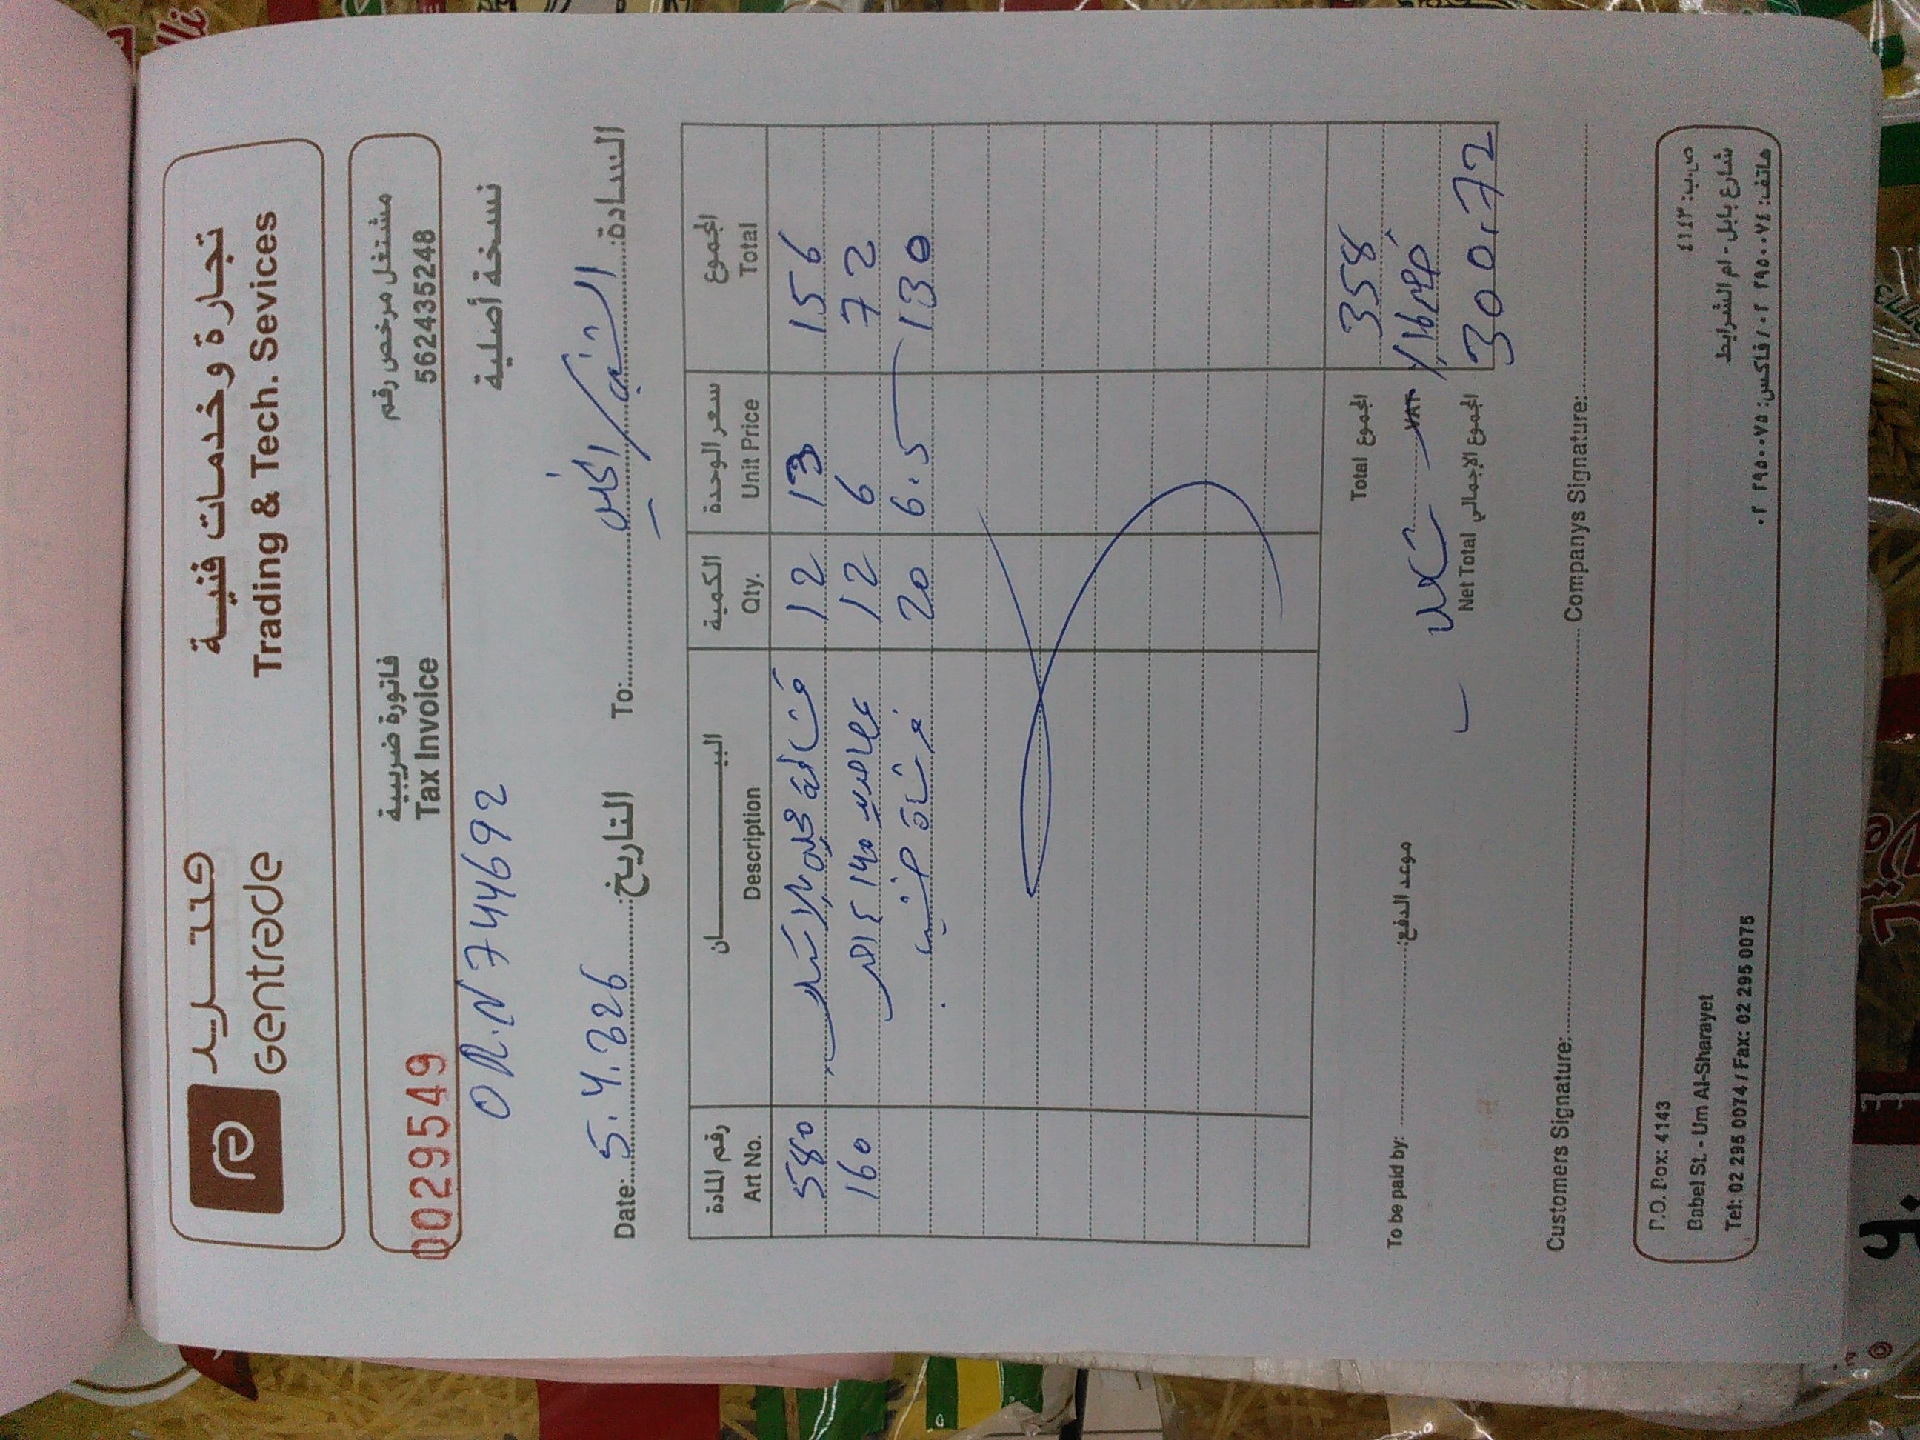 جنتريد
Gentrade
تجارة وخدمات فنية
Trading & Tech. Sevices
0029549
فاتورة ضريبية
Tax Invoice
مشتغل مرخص رقم
562435248
OR.N 744692
نسخة أصلية
Date: 5.4.2026 التاريخ:
To: السادة:
رقم المادة البيـــــــان الكمية سعر الوحدة المجموع
Art No. Description Qty. Unit Price Total
580 12 13 156
160 12 6 72
20 6.5 130
Total المجموع 358
VAT 16% خصم
To be paid by: موعد الدفع:
Net Total المجموع الإجمالي 300.72
Customers Signature: Companys Signature:
P.O. Box: 4143
Babel St. - Um Al-Sharayet
Tel: 02 295 0074 / Fax: 02 295 0075
ص.ب: ٤١٤٣
شارع بابل - ام الشرايط
هاتف: ٢٩٥٠٠٧٤ ٠٢ / فاكس: ٢٩٥٠٠٧٥ ٠٢